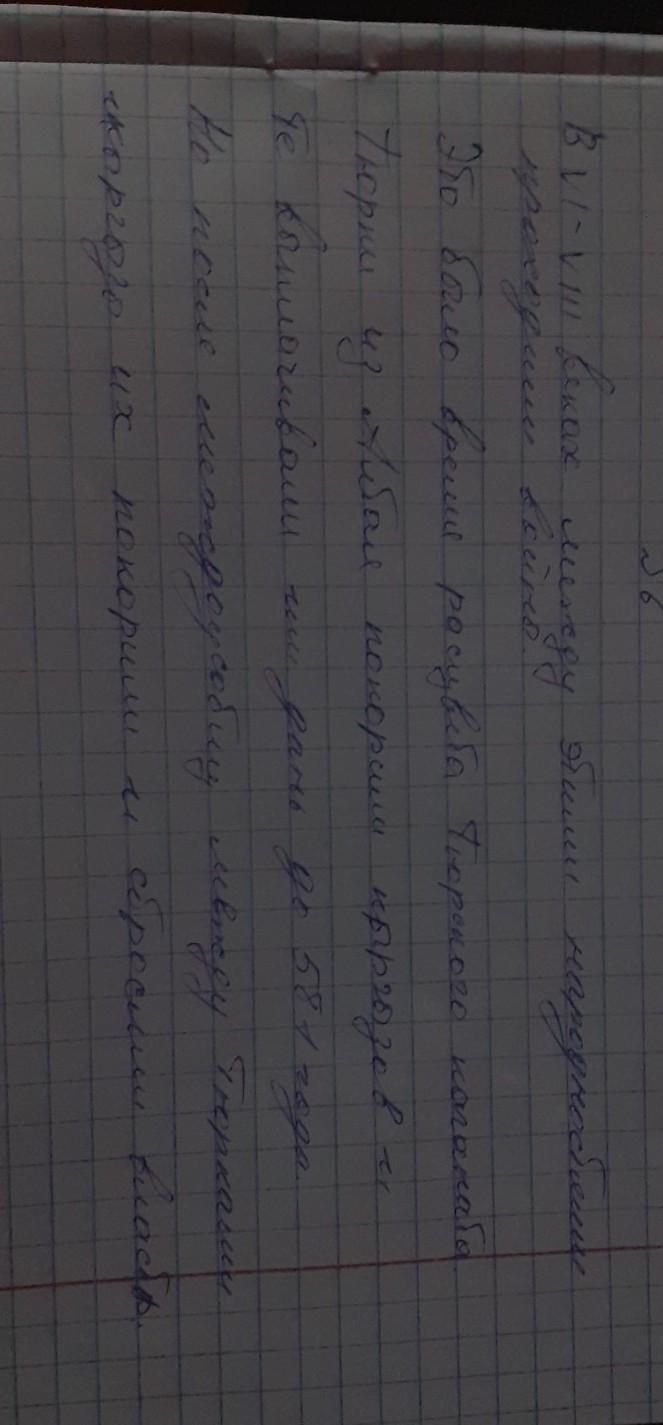 №6
В VI-VIII веках между этими народностями
проходили войны.
Это было время расцвета Тюркского каганата
Тюрки из Алтая покорили кыргызов и
те выплачивали им дань до 581 года.
Но после междоусобиц между Тюрками
кыргызы их покорили и сбросили власть.